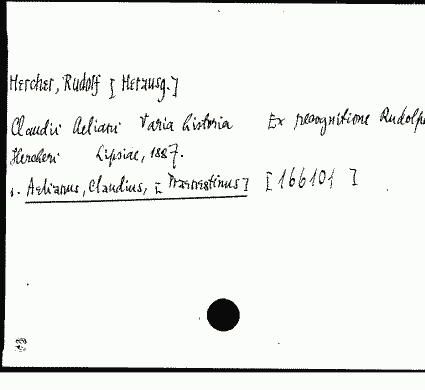 Hercher, Rudolf [ Herausg.]
Claudii Aeliani Varia historia Ex recognitione Rudolphi
Hercheri Lipsiae, 1887.
s. Aelianus, Claudius, [ Praenestinus ] [ 166101 ]